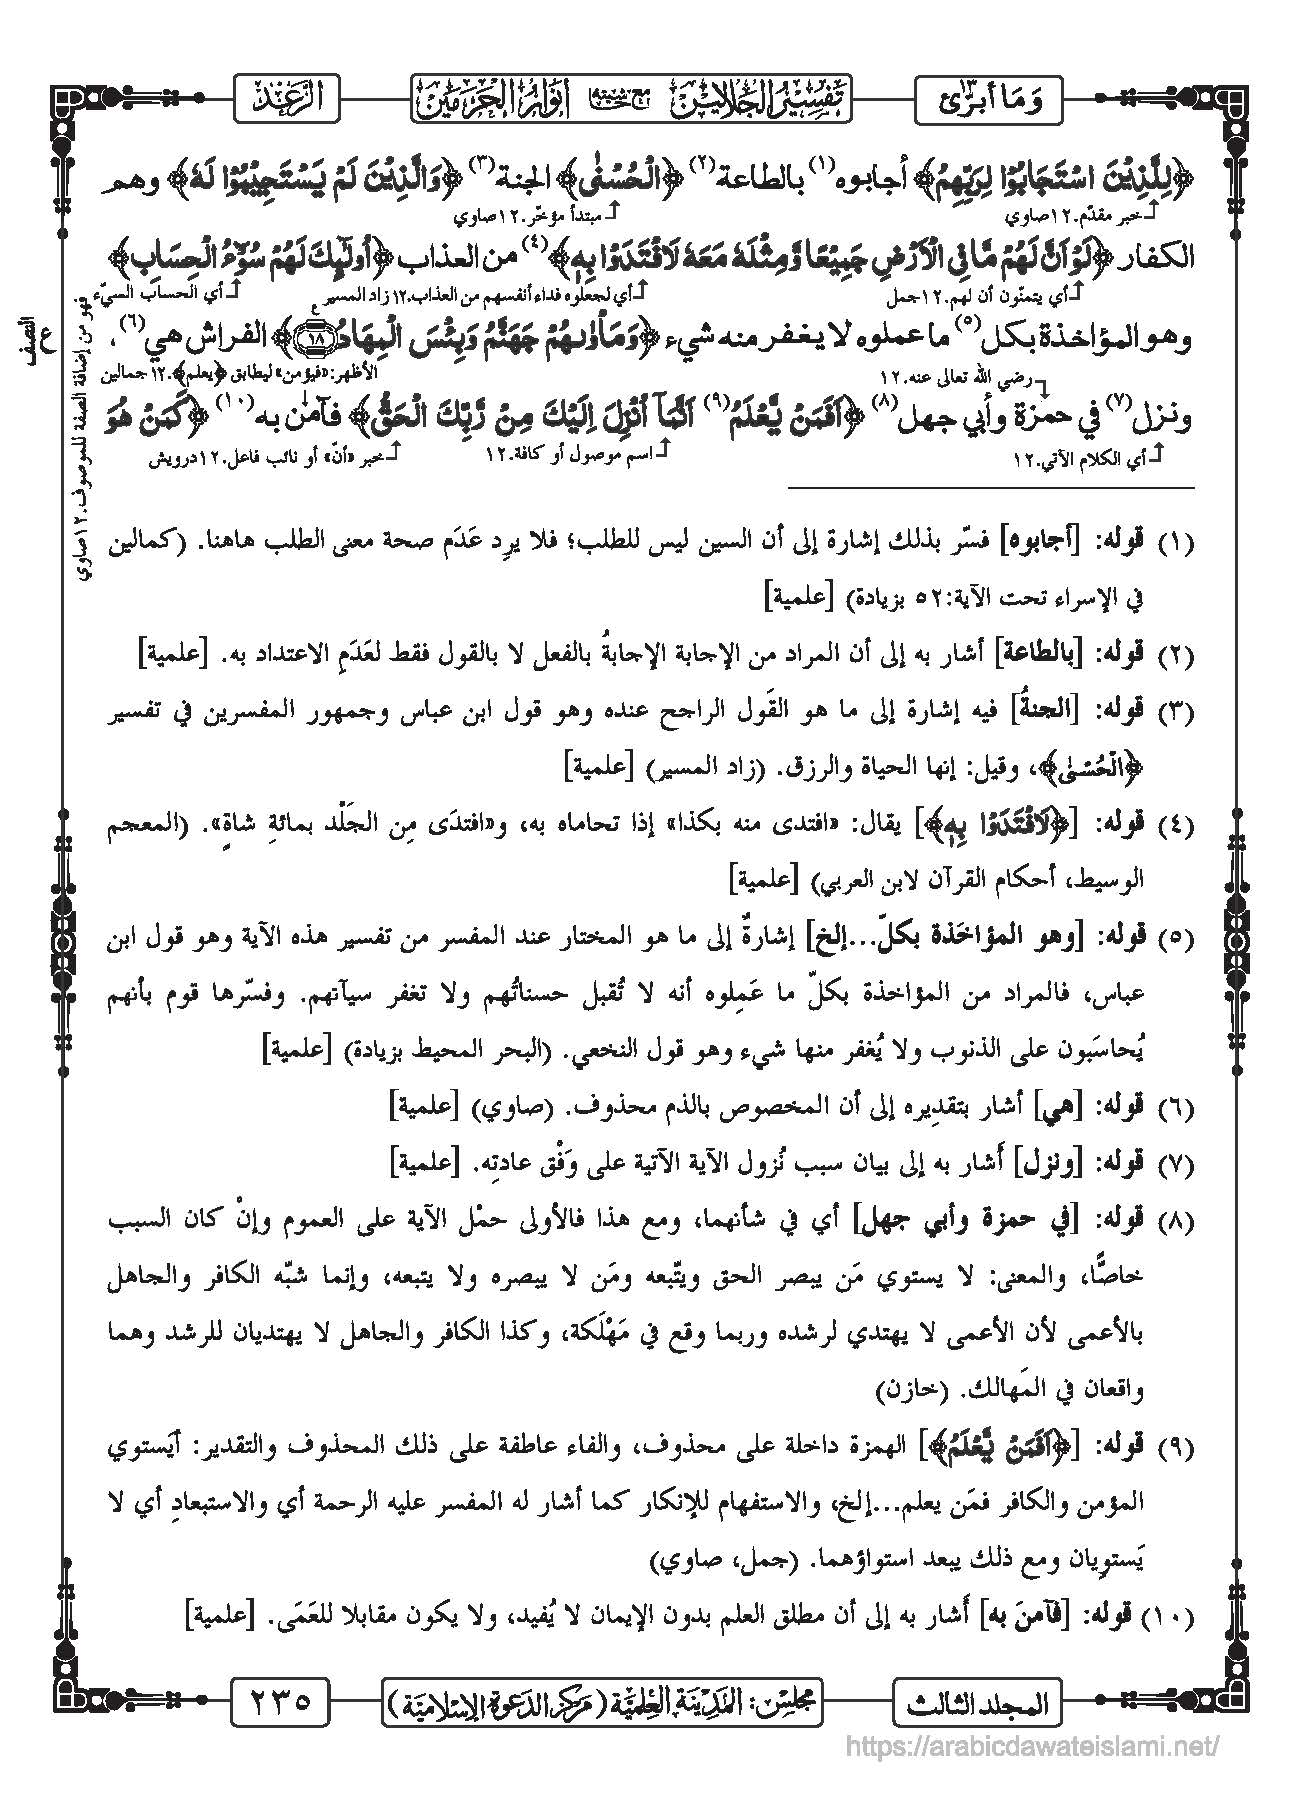 وَمَا أبرّئ ١٣
تفسير الجلالين مع حاشيته أنوار الحرمين
الرعد
﴿لِلَّذِيْنَ اسْتَجَابُوْا لِرَبِّهِمُ﴾ أجابوه(١) بالطاعة(٢) ﴿الْحُسْنٰى﴾ الجنة(٣) ﴿وَالَّذِيْنَ لَمْ يَسْتَجِيْبُوْا لَهٗ﴾ وهم
خبر مقدّم.١٢صاوي
مبتدأ مؤخّر.١٢صاوي
الكفار ﴿لَوْ اَنَّ لَهُمْ مَّا فِي الْاَرْضِ جَمِيْعًا وَّمِثْلَهٗ مَعَهٗ لَافْتَدَوْا بِهٖ﴾(٤) من العذاب ﴿اُولٰٓئِكَ لَهُمْ سُوْٓءُ الْحِسَابِ﴾
أي يتمنّون أن لهم.١٢جمل
أي لجعلوه فداء أنفسهم من العذاب.١٢زاد المسير
أي الحساب السيّء
فهو من إضافة الصفة للموصوف.١٢صاوي
النصف
ع
وهو المؤاخذة بكل(٥) ما عملوه لا يغفر منه شيء ﴿وَمَاْوٰىهُمْ جَهَنَّمُ وَبِئْسَ الْمِهَادُ ١٨﴾ الفراش هي(٦)،
رضي الله تعالى عنه.١٢
الأظهر: «فيؤمن» ليطابق ﴿يعلم﴾.١٢جمالين
ونزل(٧) في حمزة وأبي جهل(٨) ﴿اَفَمَنْ يَّعْلَمُ(٩) اَنَّمَآ اُنْزِلَ اِلَيْكَ مِنْ رَّبِّكَ الْحَقُّ﴾ فآمن به(١٠) ﴿كَمَنْ هُوَ
أي الكلام الآتي.١٢
اسم موصول أو كافة.١٢
خبر «أنّ» أو نائب فاعل.١٢درويش
(١) قوله: [أجابوه] فسّر بذلك إشارة إلى أن السين ليس للطلب؛ فلا يرِد عَدَم صحة معنى الطلب هاهنا. (كمالين
في الإسراء تحت الآية:٥٢ بزيادة) [علمية]
(٢) قوله: [بالطاعة] أشار به إلى أن المراد من الإجابة الإجابةُ بالفعل لا بالقول فقط لعَدَمِ الاعتداد به. [علمية]
(٣) قوله: [الجنةُ] فيه إشارة إلى ما هو القَول الراجح عنده وهو قول ابن عباس وجمهور المفسرين في تفسير
﴿الْحُسْنٰى﴾، وقيل: إنها الحياة والرزق. (زاد المسير) [علمية]
(٤) قوله: [﴿لَافْتَدَوْا بِهٖ﴾] يقال: «افتدى منه بكذا» إذا تحاماه به، و«افتدَى مِن الجَلْد بمائةِ شاةٍ». (المعجم
الوسيط، أحكام القرآن لابن العربي) [علمية]
(٥) قوله: [وهو المؤاخَذة بكلّ...إلخ] إشارةٌ إلى ما هو المختار عند المفسر من تفسير هذه الآية وهو قول ابن
عباس، فالمراد من المؤاخذة بكلّ ما عَمِلوه أنه لا تُقبل حسناتُهم ولا تغفر سيآتهم. وفسّرها قوم بأنهم
يُحاسَبون على الذنوب ولا يُغفر منها شيء وهو قول النخعي. (البحر المحيط بزيادة) [علمية]
(٦) قوله: [هي] أشار بتقدِيره إلى أن المخصوص بالذم محذوف. (صاوي) [علمية]
(٧) قوله: [ونزل] أَشار به إلى بيان سبب نُزول الآية الآتية على وَفْق عادتِه. [علمية]
(٨) قوله: [في حمزة وأبي جهل] أي في شأنهما، ومع هذا فالأولى حمْل الآية على العموم وإنْ كان السبب
خاصًّا، والمعنى: لا يستوي مَن يبصر الحق ويتّبعه ومَن لا يبصره ولا يتبعه، وإنما شبّه الكافر والجاهل
بالأعمى لأن الأعمى لا يهتدي لرشده وربما وقع في مَهْلَكة، وكذا الكافر والجاهل لا يهتديان للرشد وهما
واقعان في المَهالك. (خازن)
(٩) قوله: [﴿اَفَمَنْ يَّعْلَمُ﴾] الهمزة داخلة على محذوف، والفاء عاطفة على ذلك المحذوف والتقدير: أيَستوي
المؤمن والكافر فمَن يعلم...إلخ، والاستفهام للإنكار كما أشار له المفسر عليه الرحمة أي والاستبعادِ أي لا
يَستوِيان ومع ذلك يبعد استواؤهما. (جمل، صاوي)
(١٠) قوله: [فآمنَ به] أَشار به إلى أن مطلق العلم بدون الإيمان لا يُفيد، ولا يكون مقابلا للعَمَى. [علمية]
المجلد الثالث
مجلس: المدينة العلمية (مركز الدعوة الإسلامية)
٢٣٥
https://arabicdawateislami.net/